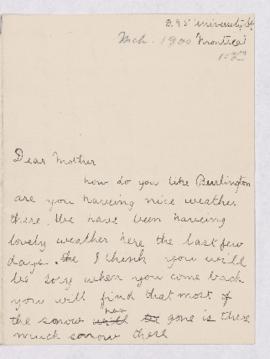 295 University St
Mch. 1900 Montreal
Dear Mother
how do you like Burlington
are you haveing nice weather
there. We have been haveing
lovely weather here the last few
days. I think you will
be sory when you come back
you will find that most of
the snow has gone is there
much snow there